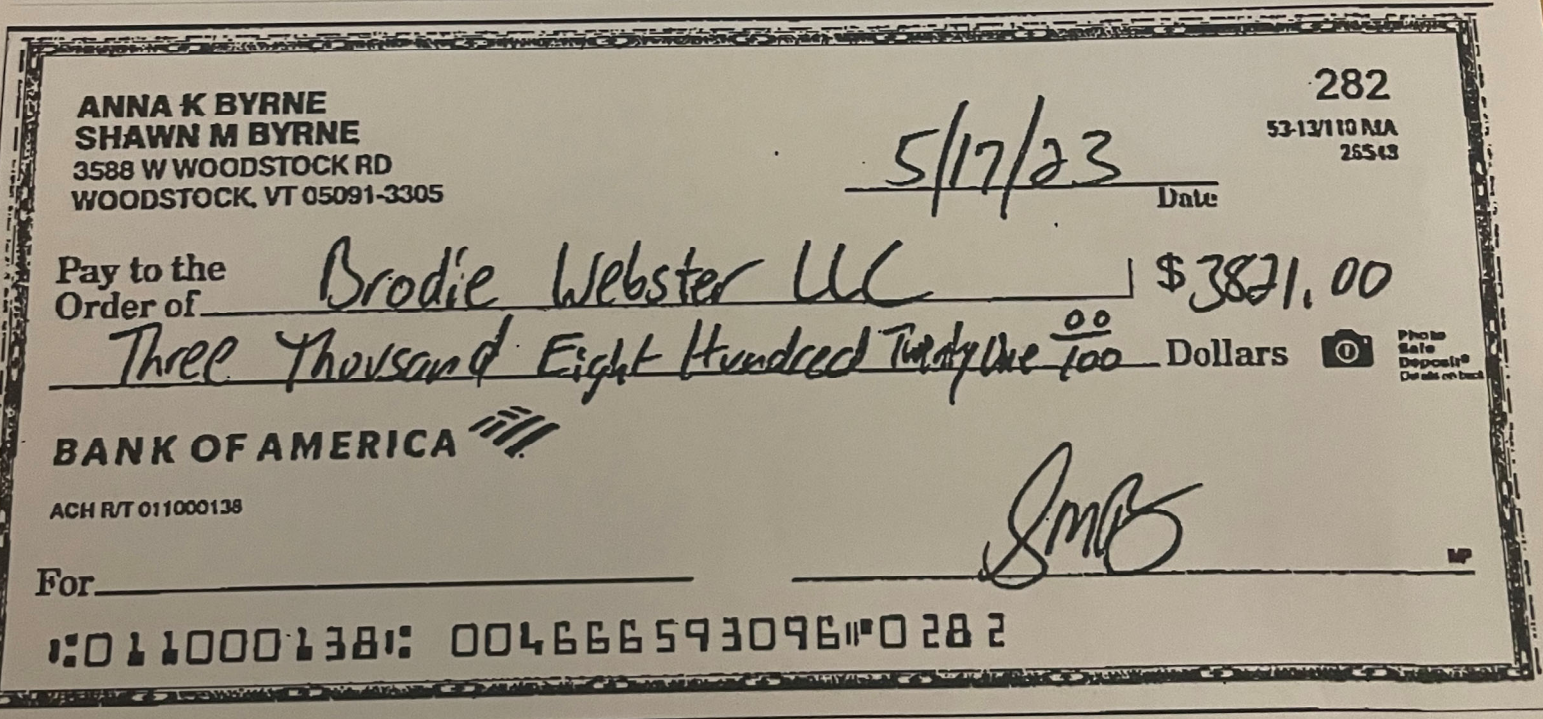 ANNA K BYRNE
SHAWN M BYRNE
3588 W WOODSTOCK RD
WOODSTOCK, VT 05091-3305
282
53-13/110 MA
26543
5/17/23
Date
Pay to the
Order of Brodie Webster LLC $3821.00
Three Thousand Eight Hundred Twenty One 00/100 Dollars
Photo
Safe
Deposit®
Details on back
BANK OF AMERICA
ACH R/T 011000138
For
SMB
MP
⑆011000138⑆ 004666593096⑈0282